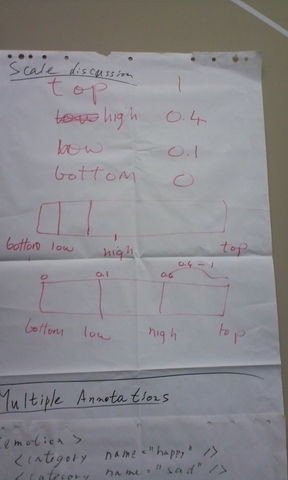 Scale discussion
top 1
low high 0.4
low 0.1
bottom 0
bottom low high top
0 0.1 0.6 0.6 - 1
bottom low high top
Multiple Annotations
<emotion>
<category name="happy" />
<category name="sad" />